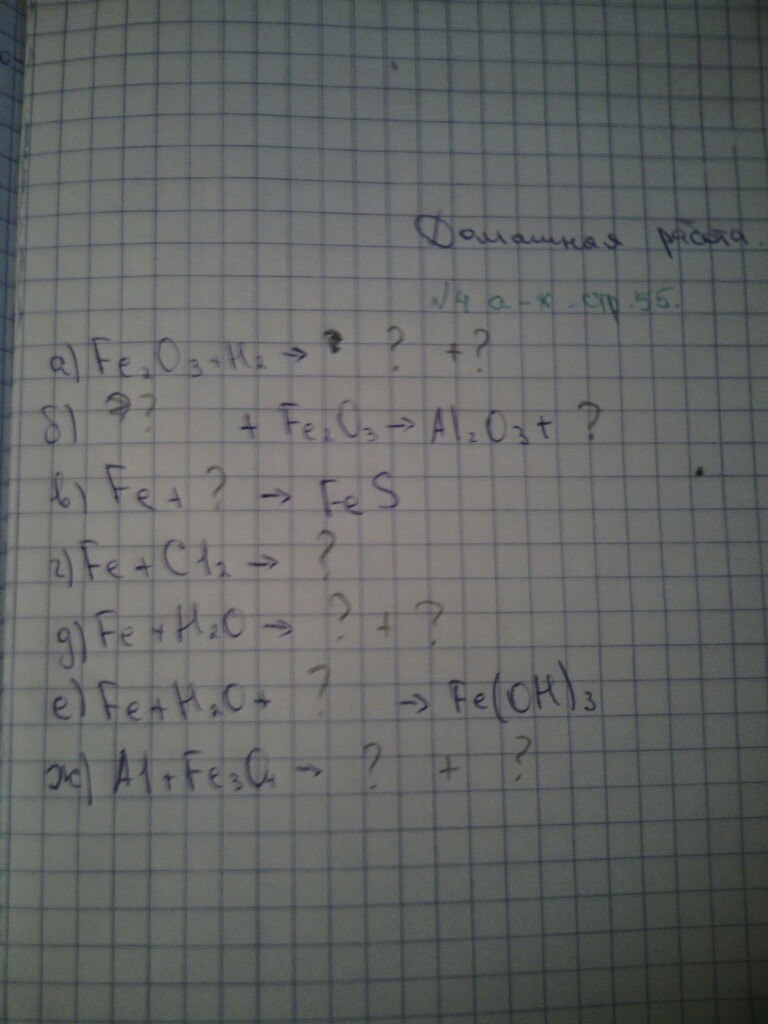 Домашная работа.
№4 а-ж стр.55.
а) Fe₂O₃+H₂ → ? +?
б) ? + Fe₂O₃ → Al₂O₃+ ?
в) Fe + ? → FeS
г) Fe + Cl₂ → ?
д) Fe + H₂O → ? + ?
е) Fe+H₂O+ ? → Fe(OH)₃
ж) Al+Fe₃O₄ → ? + ?